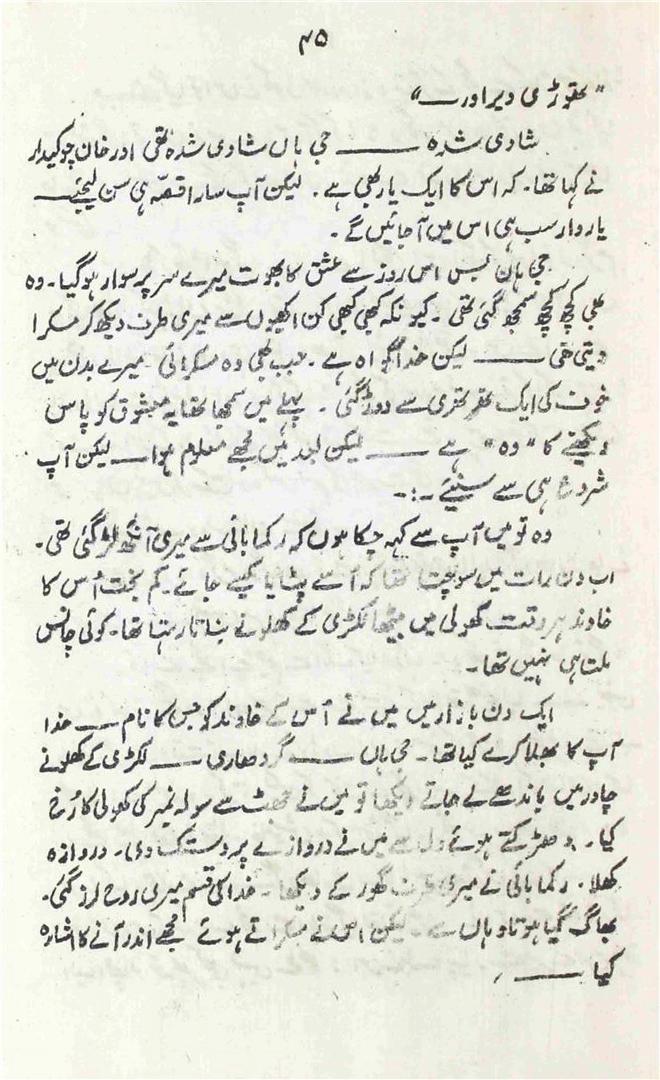 ۴۵
"تھوڑی دیر اور ــــ"
شادی شدہ ــــــ جی ہاں شادی شدہ تھی اور خان چوکیدار
نے کہا تھا۔ کہ اس کا ایک یار بھی ہے۔ لیکن آپ سارا قصّہ ہی سن لیجئے ــــ
یار وار سب ہی اس میں آجائیں گے۔
جی ہاں بس اس روز سے عشق کا بھوت میرے سر پر سوار ہوگیا۔ وہ
بھی کچھ کچھ سمجھ گئی تھی۔ کیونکہ کبھی کبھی کن اکھیوں سے میری طرف دیکھ کر مسکرا
دیتی تھی ــــــ لیکن خدا گواہ ہے۔ جب بھی وہ مسکرائی میرے بدن میں
خوف کی ایک تھرتھری سے دوڑ گئی۔ پہلے میں سمجھا تھا یہ معشوق کو پاس
دیکھنے کا "وہ" ہے ــــــ لیکن بعد میں مجھے معلوم ہوا ــــ لیکن آپ
شروع ہی سے سنیئے ـ:ـ
وہ تو میں آپ سے کہہ چکا ہوں کہ رکما بائی سے میری آنکھ لڑ گئی تھی۔
اب دن رات میں سوچتا تھا کہ اُسے پٹایا کیسے جائے۔ کم بخت اُس کا
خاوند ہر وقت کھولی میں بیٹھا لکڑی کے کھلونے بناتا رہتا تھا۔ کوئی چانس
ملتا ہی نہیں تھا۔
ایک دن بازار میں میں نے اُس کے خاوند کو جس کا نام ــــ خدا
آپ کا بھلا کرے کیا تھا۔ جی ہاں ــــــ گردھاری ــــ لکڑی کے کھلونے
چادر میں باندھے لے جاتے دیکھا تو میں نے جھٹ سے سولہ نمبر کی کھولی کا رُخ
کیا۔ دھڑکتے ہوئے دل سے میں نے دروازے پر دستک دی۔ دروازہ
کھلا۔ رکما بائی نے میری طرف گھور کے دیکھا۔ خدا کی قسم میری روح لرز گئی۔
بھاگ گیا ہوتا وہاں سے۔ لیکن اس نے مسکراتے ہوئے مجھے اندر آنے کا اشارہ
کیا ــــــ